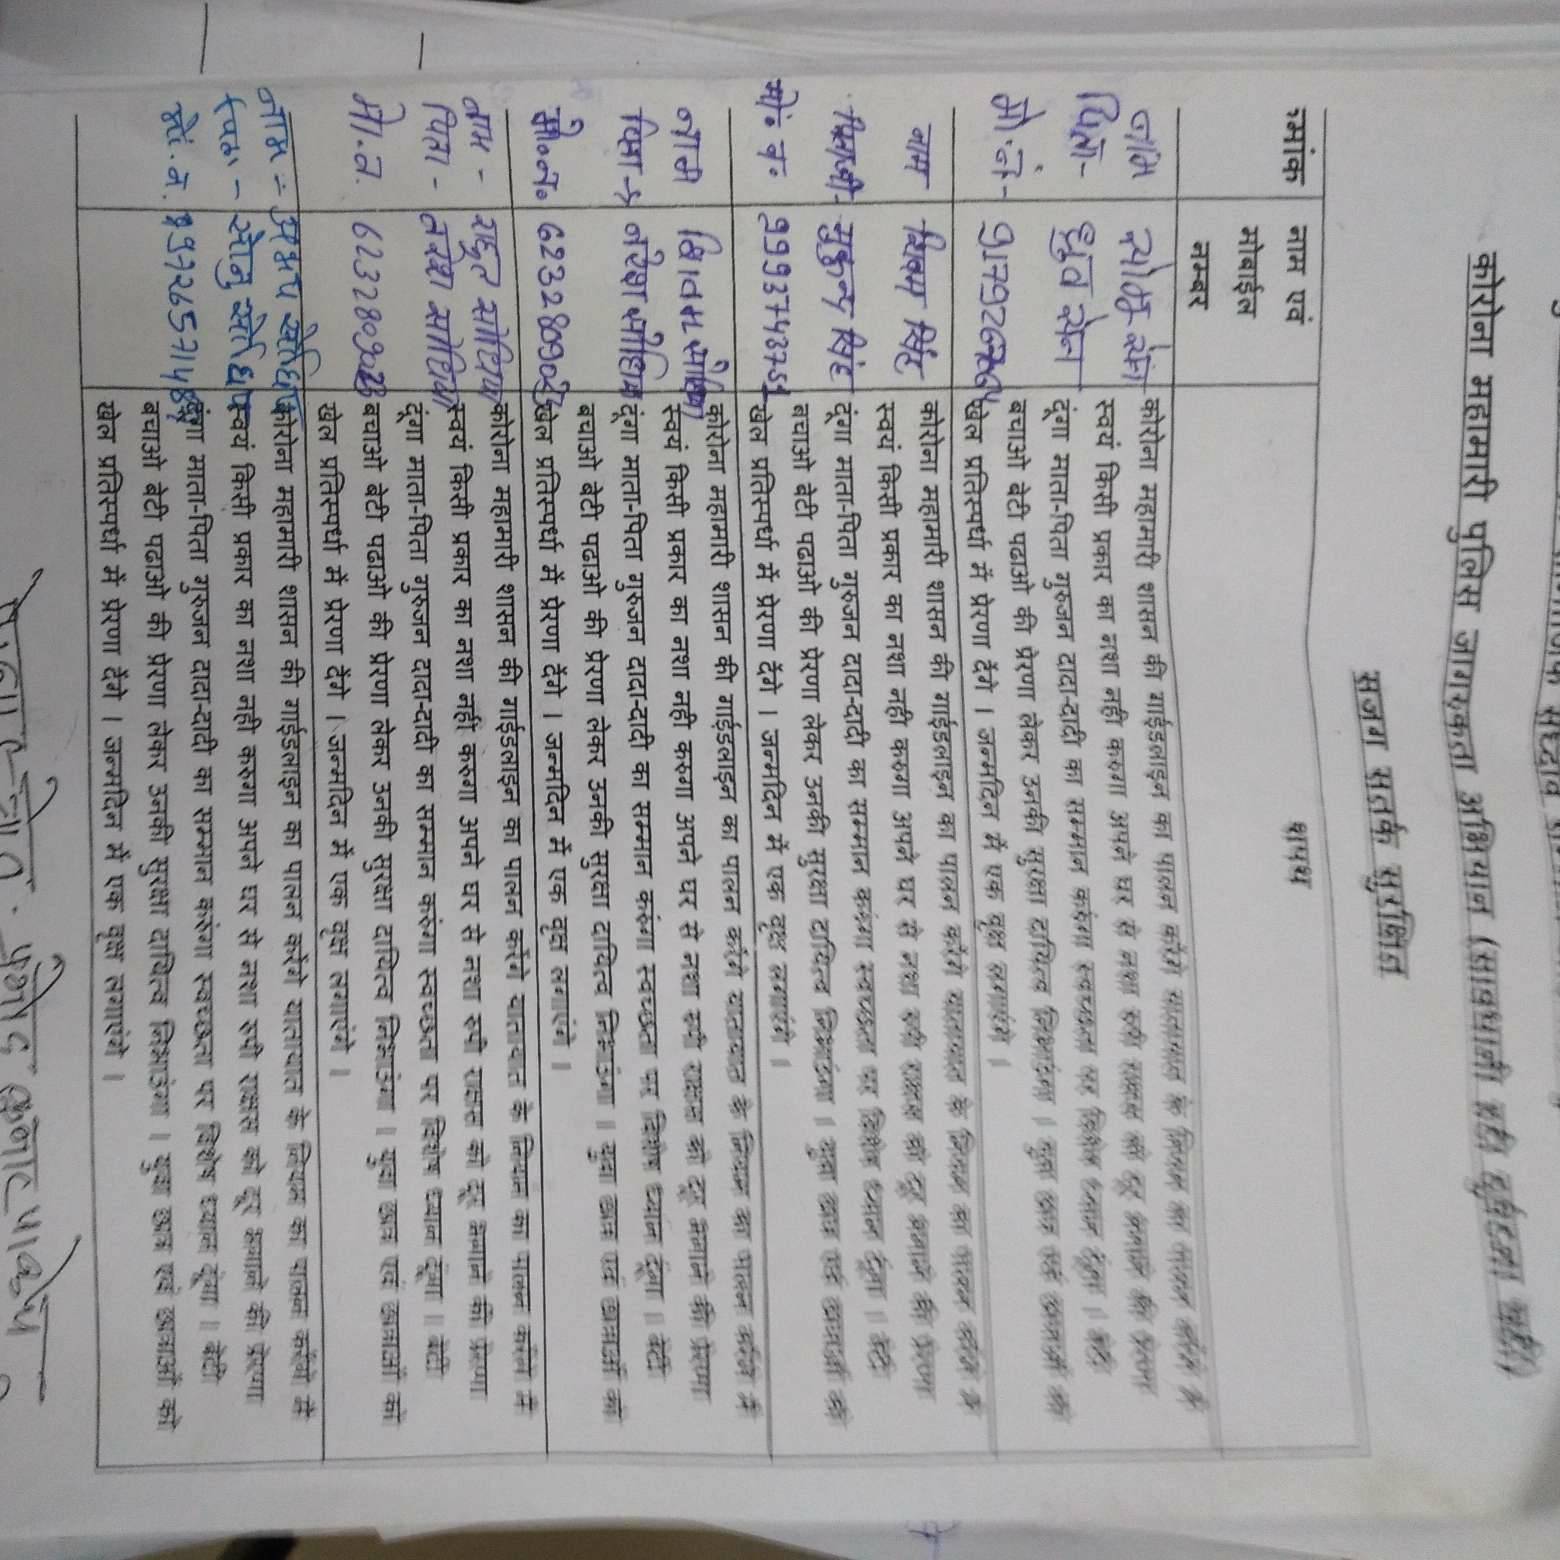 कोरोना महामारी पुलिस जागरुकता अभियान (सावधानी हटी दुर्घटना घटी)
सजग सतर्क सुरक्षित
क्रमांक
नाम एवं
मोबाईल
नम्बर
शपथ
नाम
पिता-
मो.नं-
सोनू सेन
ध्रुव सेन
कोरोना महामारी शासन की गाईडलाइन का पालन करेंगे यातायात के नियम का पालन करेंगे मैं
स्वयं किसी प्रकार का नशा नही करुंगा अपने घर से नशा रुपी राक्षस को दूर भगाने की प्रेरणा
दूंगा माता-पिता गुरुजन दादा-दादी का सम्मान करुंगा स्वच्छता पर विशेष ध्यान दूंगा ॥ बेटी
बचाओ बेटी पढाओ की प्रेरणा लेकर उनकी सुरक्षा दायित्व निभाउंगा । युवा छात्र एवं छात्राओं को
खेल प्रतिस्पर्धा में प्रेरणा देंगे । जन्मदिन में एक वृक्ष लगाएंगे ।
नाम
पिताजी-
मो० न०
शिवम सिंह
मुकुन्द सिंह
कोरोना महामारी शासन की गाईडलाइन का पालन करेंगे यातायात के नियम का पालन करेंगे मैं
स्वयं किसी प्रकार का नशा नही करुंगा अपने घर से नशा रुपी राक्षस को दूर भगाने की प्रेरणा
दूंगा माता-पिता गुरुजन दादा-दादी का सम्मान करुंगा स्वच्छता पर विशेष ध्यान दूंगा ॥ बेटी
बचाओ बेटी पढाओ की प्रेरणा लेकर उनकी सुरक्षा दायित्व निभाउंगा । युवा छात्र एवं छात्राओं को
खेल प्रतिस्पर्धा में प्रेरणा देंगे । जन्मदिन में एक वृक्ष लगाएंगे ।
नाम
पिता →
मो०न०
शिवम
नरेश
कोरोना महामारी शासन की गाईडलाइन का पालन करेंगे यातायात के नियम का पालन करेंगे मैं
स्वयं किसी प्रकार का नशा नही करुंगा अपने घर से नशा रुपी राक्षस को दूर भगाने की प्रेरणा
दूंगा माता-पिता गुरुजन दादा-दादी का सम्मान करुंगा स्वच्छता पर विशेष ध्यान दूंगा ॥ बेटी
बचाओ बेटी पढाओ की प्रेरणा लेकर उनकी सुरक्षा दायित्व निभाउंगा ॥ युवा छात्र एवं छात्राओं को
खेल प्रतिस्पर्धा में प्रेरणा देंगे । जन्मदिन में एक वृक्ष लगाएंगे ।
नाम -
पिता -
मो.न.
राहुल
नरेश
कोरोना महामारी शासन की गाईडलाइन का पालन करेंगे यातायात के नियम का पालन करेंगे मैं
स्वयं किसी प्रकार का नशा नही करुंगा अपने घर से नशा रुपी राक्षस को दूर भगाने की प्रेरणा
दूंगा माता-पिता गुरुजन दादा-दादी का सम्मान करुंगा स्वच्छता पर विशेष ध्यान दूंगा ॥ बेटी
बचाओ बेटी पढाओ की प्रेरणा लेकर उनकी सुरक्षा दायित्व निभाउंगा ॥ युवा छात्र एवं छात्राओं को
खेल प्रतिस्पर्धा में प्रेरणा देंगे । जन्मदिन में एक वृक्ष लगाएंगे ।
नाम -
कोरोना महामारी शासन की गाईडलाइन का पालन करेंगे यातायात के नियम का पालन करेंगे मैं
स्वयं किसी प्रकार का नशा नही करुंगा अपने घर से नशा रुपी राक्षस को दूर भगाने की प्रेरणा
दूंगा माता-पिता गुरुजन दादा-दादी का सम्मान करुंगा स्वच्छता पर विशेष ध्यान दूंगा ॥ बेटी
बचाओ बेटी पढाओ की प्रेरणा लेकर उनकी सुरक्षा दायित्व निभाउंगा । युवा छात्र एवं छात्राओं को
खेल प्रतिस्पर्धा में प्रेरणा देंगे । जन्मदिन में एक वृक्ष लगाएंगे ।